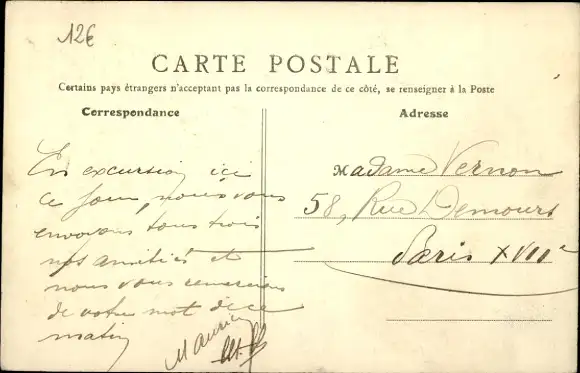 12€
CARTE POSTALE
Certains pays étrangers n'acceptant pas la correspondance de ce côté, se renseigner à la Poste
Correspondance
Adresse
En excursion ici
ce jour, nous vous
envoyons tous trois
nos amitiés et
nous vous remercions
de votre mot de ce
matin
Madame Vernon
58, Rue Demours
Paris XVIIe